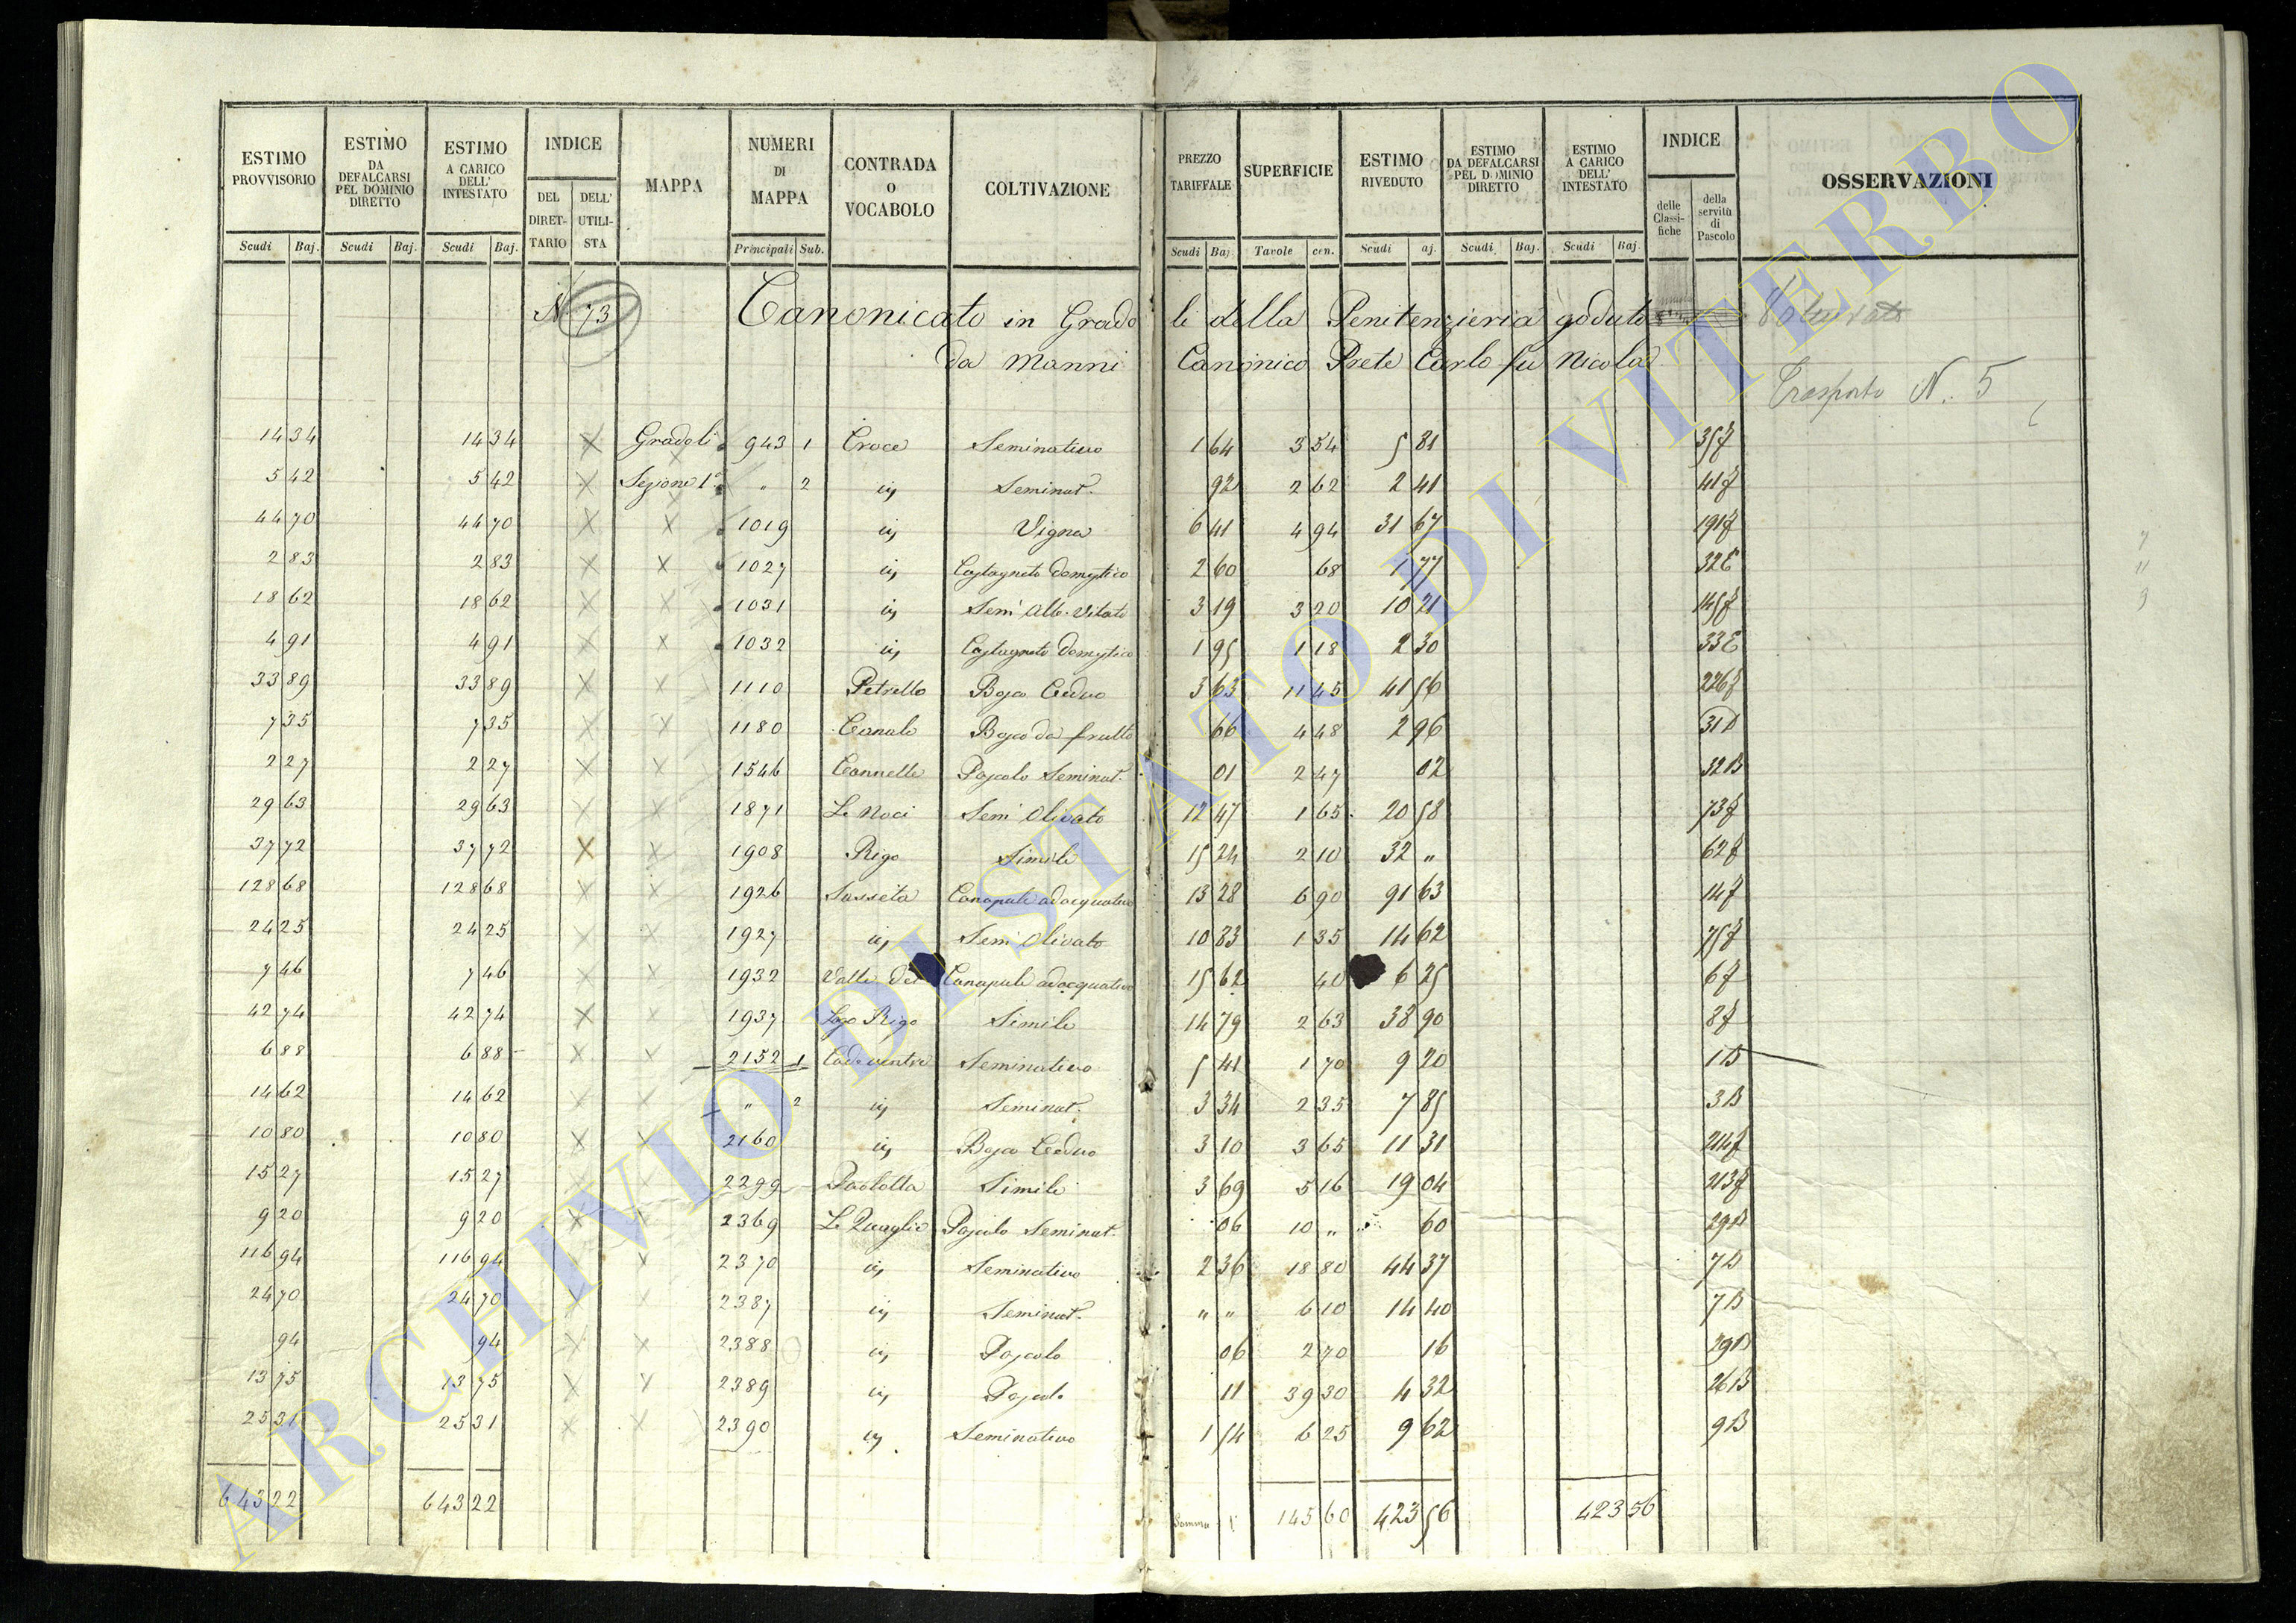 ESTIMO PROVVISORIO | ESTIMO DA DEFALCARSI PEL DOMINIO DIRETTO | ESTIMO A CARICO DELL' INTESTATO | INDICE | MAPPA | NUMERI DI MAPPA | CONTRADA O VOCABOLO | COLTIVAZIONE | PREZZO TARIFFALE | SUPERFICIE | ESTIMO RIVEDUTO | ESTIMO DA DEFALCARSI PEL DOMINIO DIRETTO | ESTIMO A CARICO DELL' INTESTATO | INDICE | OSSERVAZIONI
DEL DIRETTARIO | DELL' UTILISTA | delle Classifiche | della servitù di Pascolo
Scudi | Baj. | Scudi | Baj. | Scudi | Baj. | Principali | Sub. | Scudi | Baj. | Tavole | cen. | Scudi | aj. | Scudi | Baj. | Scudi | Baj.
N 73 Canonicato in Gradoli della Penitenzieria goduto
da Manni Canonico Prete Carlo fu Nicola
Trasporto N. 5
14 34 | 14 34 | X | Gradoli | 943 | 1 | Croce | Seminativo | 1 64 | 3 54 | 5 81 | 35f
5 42 | 5 42 | X | Sezione 1ª | " | 2 | iv | Seminat. | 92 | 2 62 | 2 41 | 41f
44 70 | 44 70 | X | X | 1019 | iv | Vigna | 6 41 | 4 94 | 31 67 | 191f
2 83 | 2 83 | X | X | 1027 | iv | Castagneto domestico | 2 60 | 68 | 1 77 | 32E
18 62 | 18 62 | X | X | 1031 | iv | Sem Alb. Vitato | 3 19 | 3 20 | 10 21 | 145f
4 91 | 4 91 | X | X | 1032 | iv | Castagneto domestico | 1 95 | 1 18 | 2 30 | 33E
33 89 | 33 89 | X | X | 1110 | Petrello | Bosco Ceduo | 3 63 | 11 45 | 41 56 | 226f
7 35 | 7 35 | X | X | 1180 | Canale | Bosco da frutto | 66 | 4 48 | 2 96 | 31D
2 27 | 2 27 | X | X | 1546 | Cannelle | Pascolo Seminat. | 01 | 2 47 | 02 | 32B
29 63 | 29 63 | X | X | 1871 | Le Noci | Sem Olivato | 12 47 | 1 65 | 20 58 | 73f
37 72 | 37 72 | X | X | 1908 | Rigo | Simile | 15 24 | 2 10 | 32 " | 62f
128 68 | 128 68 | X | X | 1926 | Sasseta | Canapule adacquativo | 13 28 | 6 90 | 91 63 | 14f
24 25 | 24 25 | X | X | 1927 | iv | Sem Olivato | 10 83 | 1 35 | 14 62 | 75f
7 46 | 7 46 | X | X | 1932 | Valle del | Canapule adacquativo | 15 62 | 40 | 6 25 | 6f
42 74 | 42 74 | X | X | 1937 | Lago Rigo | Simile | 14 79 | 2 63 | 38 90 | 8f
6 88 | 6 88 | X | X | 2152 | 1 | Seminativo | 5 41 | 1 70 | 9 20 | 1B
14 62 | 14 62 | X | X | " | 2 | iv | Seminat. | 3 34 | 2 35 | 7 85 | 3B
10 80 | 10 80 | X | X | 2160 | iv | Bosco Ceduo | 3 10 | 3 65 | 11 31 | 214f
15 27 | 15 27 | X | X | 2299 | Paolotta | Simile | 3 69 | 5 16 | 19 04 | 213f
9 20 | 9 20 | X | X | 2369 | Le Quaglie | Pascolo Seminat. | 06 | 10 " | 60 | 29B
116 94 | 116 94 | X | 2370 | iv | Seminativo | 2 36 | 18 80 | 44 37 | 7D
24 70 | 24 70 | X | X | 2387 | iv | Seminat. | " " | 6 10 | 14 40 | 7B
94 | 94 | X | X | 2388 | iv | Pascolo | 06 | 2 70 | 16 | 29B
13 75 | 13 75 | X | X | 2389 | iv | Pascolo | 11 | 39 30 | 4 32 | 26B
25 31 | 25 31 | X | X | 2390 | iv | Seminativo | 1 54 | 6 25 | 9 62 | 9B
643 22 | 643 22 | Somma | 145 60 | 423 56 | 423 56
ARCHIVIO DI STATO DI VITERBO